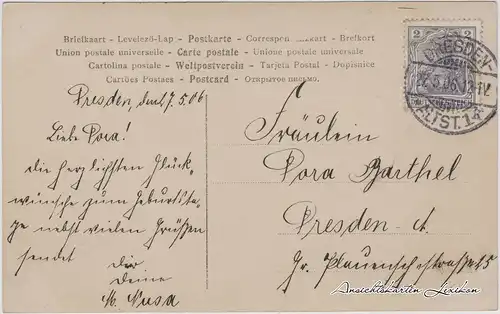 Briefkaart - Levelező-Lap - Postkarte - Correspon kart - Brefkort
Union postale universelle - Carte postale - Unione postale universale
Cartolina postale - Weltpostverein - Tarjeta Postal - Dopisnice
Cartões Postaes - Postcard - Открытое письмо.
2
DRESDEN-
ALTST. 14
Dresden, den 7.5.06
Liebe Dora!
die herzlichsten Glück-
wünsche zum Geburtsta-
ge nebst vielen Grüßen
sendet Dir
Deine
M.
Fräulein
Dora Barthel
Dresden - A.
Gr. Plauenschestraße 15
Ansichtskarten-Lexikon